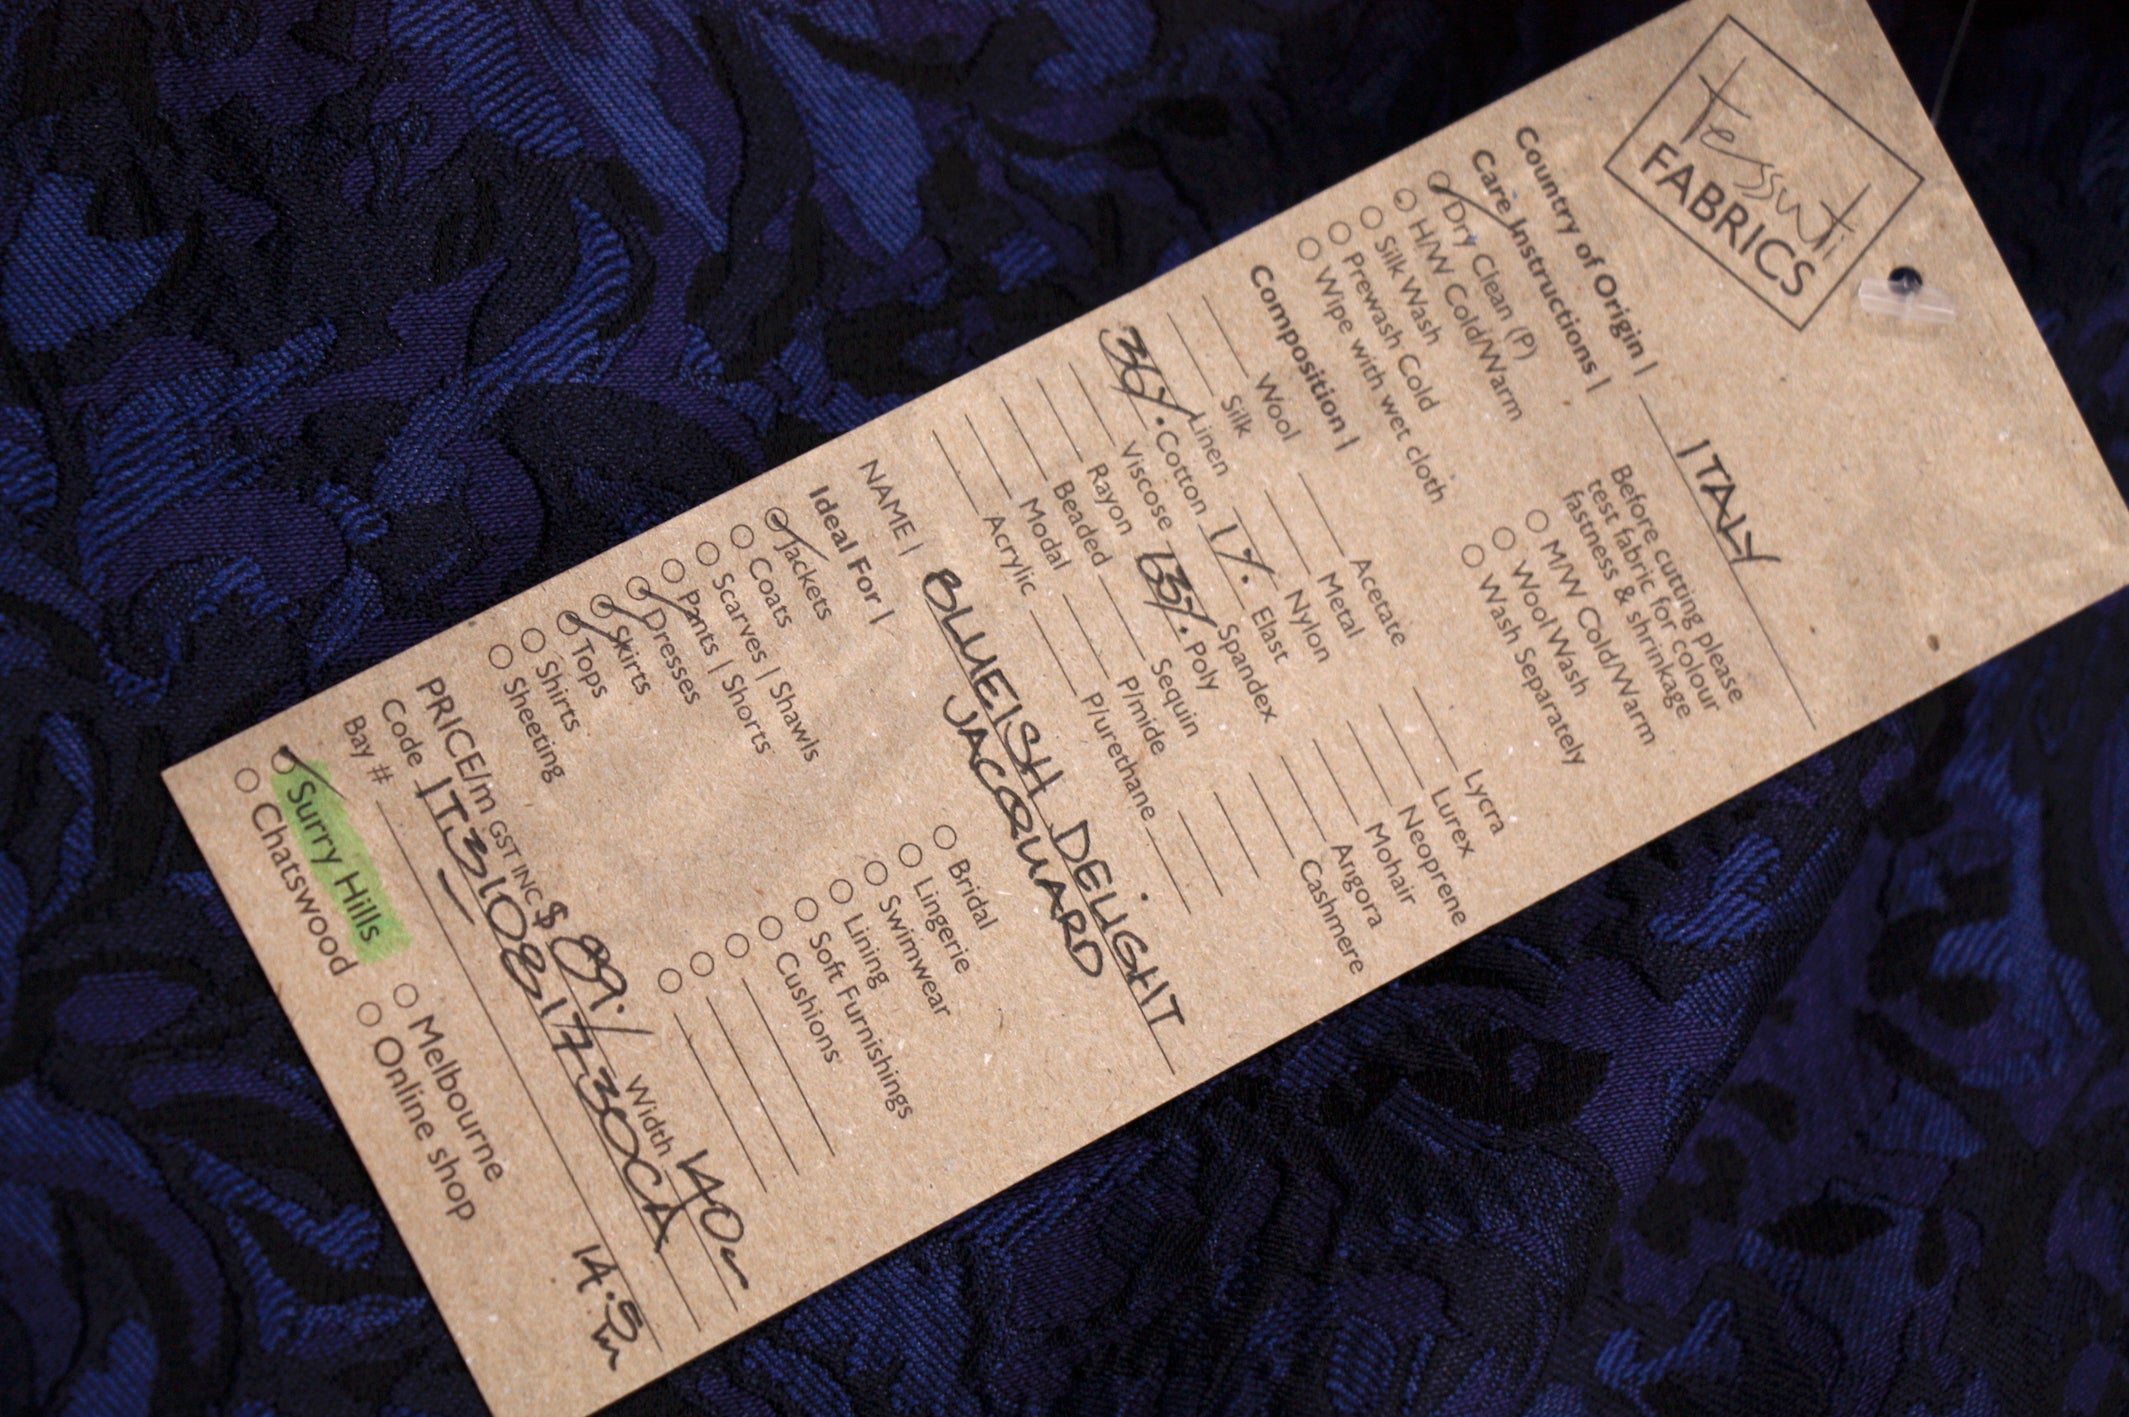 Tessuti
FABRICS
Country of Origin | ITALY
Care Instructions |
Dry Clean (P)
H/W Cold/Warm
Silk Wash
Prewash Cold
Wipe with wet cloth
Before cutting please
test fabric for colour
fastness & shrinkage
M/W Cold/Warm
Wool Wash
Wash Separately
Composition |
Wool Acetate Lycra
Silk Metal Lurex
Linen Nylon Neoprene
36% Cotton 1% Elast Mohair
Viscose Spandex Angora
Rayon 63% Poly Cashmere
Beaded Sequin
Modal P/mide
Acrylic P/urethane
NAME | BLUEISH DELIGHT
JACQUARD
Ideal For |
Jackets
Coats
Scarves | Shawls
Pants | Shorts
Dresses
Skirts
Tops
Shirts
Sheeting
Bridal
Lingerie
Swimwear
Lining
Soft Furnishings
Cushions
PRICE/m GST INC $ 89./ Width 140
Code IT310817730CA
Bay #
Surry Hills
Chatswood
Melbourne
Online shop